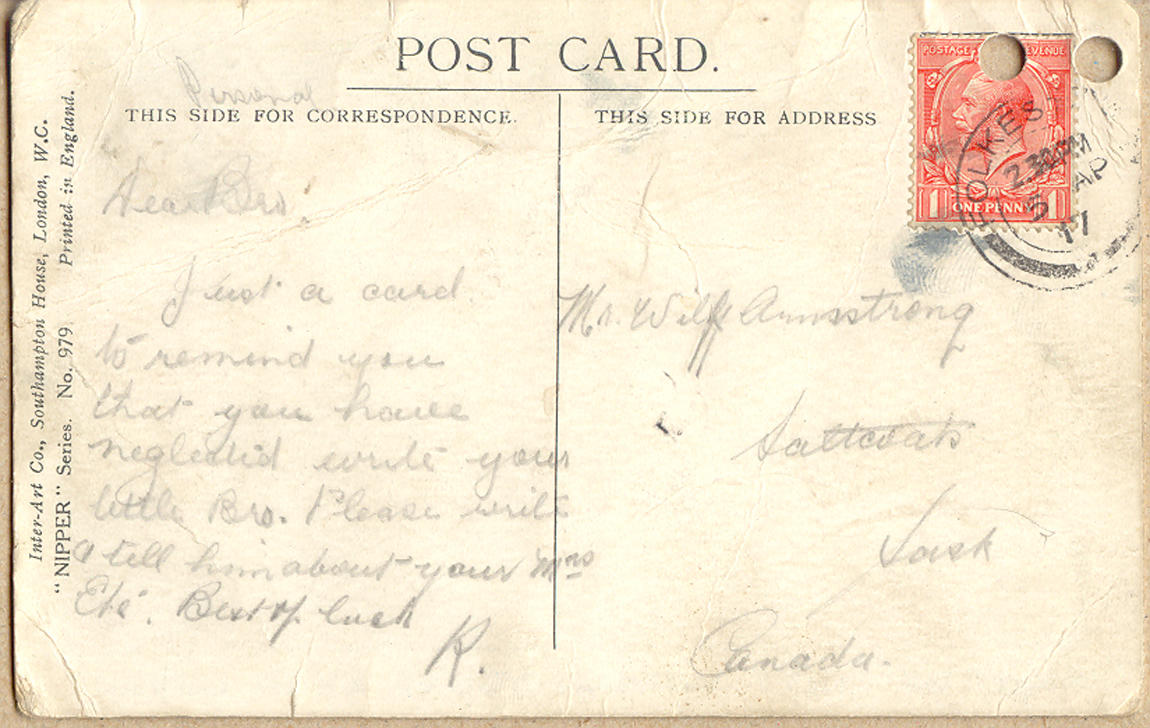 POST CARD.
Personal
THIS SIDE FOR CORRESPONDENCE.
Dear Bro.
Just a card
to remind you
that you have
neglectid write your
little Bro. Please write
& tell him about your Mrs
Etc. Best of luck
R.
THIS SIDE FOR ADDRESS
POSTAGE REVENUE
ONE PENNY
1 1
FOLKES
2.30PM
5 AP
17
Mr. Wilff Armsstrong
Saltcoats
Sask
Canada.
Inter-Art Co., Southampton House, London, W.C.
"NIPPER" Series. No. 979. Printed in England.